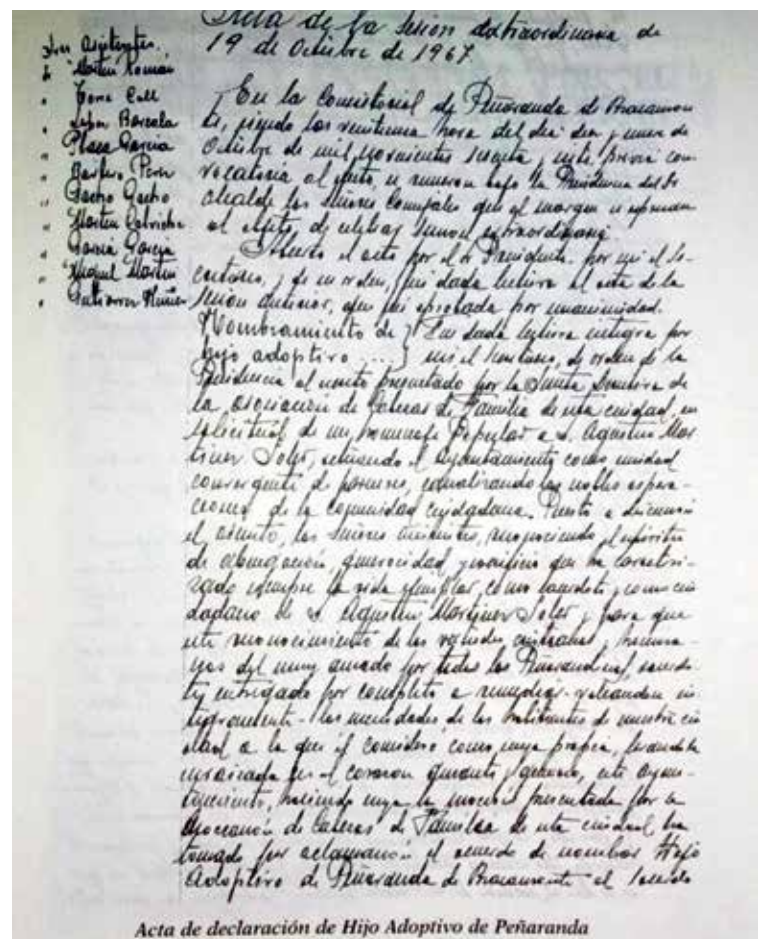 Acta de la sesión extraordinaria de
19 de Octubre de 1967
Sres Asistentes.
Martín Román
Plaza García
Gacho Gacho
García García
Miguel Martín
Gutierrez Muñoz
En la Consistorial de Peñaranda de Bracamon
te, siendo las veintiuna hora del día diez y nueve de
Octubre de mil novecientos sesenta y siete, previa con
vocatoria al efecto, se reunieron bajo la Presidencia del Sr
Alcalde los señores Concejales que al margen se expresan
al objeto de celebrar sesión extraordinaria
Abierto el acto por el Sr Presidente, por mí el Se-
cretario, y de su orden, fué dada lectura al acta de la
sesión anterior, que fué aprobada por unanimidad.
Nombramiento de } Fué dada lectura integra por
hijo adoptivo .... } mí el Secretario, de orden de la
Presidencia al escrito presentado por la Junta Directiva de
la Asociación de Cabezas de Familia de esta ciudad, en
solicitud de un homenaje Popular a D. Agustín Mar
tínez Soler, el Ayuntamiento como unidad
convergente de pareceres, canalizando las nobles aspira-
ciones de la comunidad ciudadana. Puesto a discusión
el asunto, los señores asistentes, reconociendo el espíritu
de abnegación, generosidad y sacrificio que ha caracteri-
zado siempre la vida ejemplar, como sacerdote y como ciu
dadano de D. Agustín Martínez Soler y para que
este reconocimiento de las virtudes
del muy amado por todos los Peñarandinos, sacerdo-
te, entregado por completo a remediar
las necesidades de los habitantes de nuestra ciu
dad a la que él consideró como suya propia,
en el corazón y generoso, este Ayun-
tamiento, haciendo suya la moción presentada por la
Asociación de Cabezas de Familia de esta ciudad, ha
tomado por aclamación el acuerdo de nombrar Hijo
Adoptivo de Peñaranda de Bracamonte al Sacerdo
Acta de declaración de Hijo Adoptivo de Peñaranda